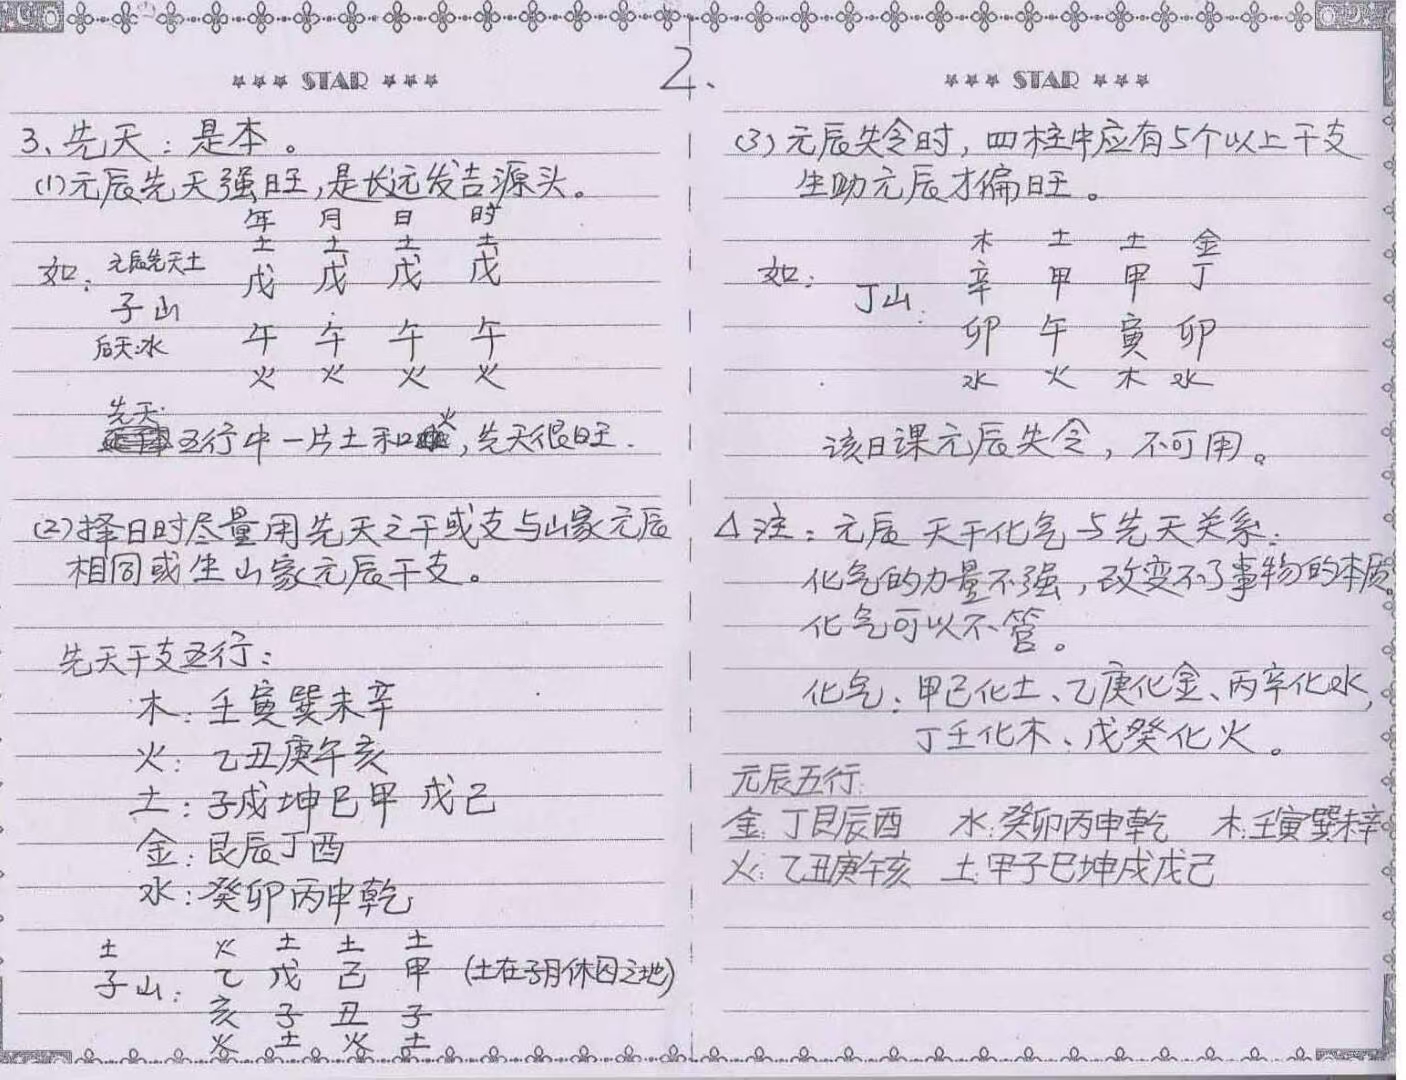 2.
★★★ STAR ★★★
3、先天：是本。
(1)元辰先天强旺,是长远发吉源头。
年 月 日 时
土 土 土 土
如： 元辰先天土 戊 戊 戊 戊
子山
后天:水 午 午 午 午
火 火 火 火
先天:
五行中一片土和火,先天很旺.
(2)择日时尽量用先天之干或支与山家元辰
相同或生山家元辰干支。
先天干支五行：
木：壬寅巽未辛
火：乙丑庚午亥
土：子戌坤巳甲戊己
金：艮辰丁酉
水：癸卯丙申乾
土 火 土 土 土
子山： 乙 戊 己 甲 (土在子月休囚之地)
亥 子 丑 子
火 土 火 土
★★★ STAR ★★★
(3)元辰失令时,四柱中应有5个以上干支
生助元辰才偏旺。
木 土 土 金
如： 丁山： 辛 甲 甲 丁
卯 午 寅 卯
水 火 木 水
该日课元辰失令,不可用。
△注：元辰天干化气与先天关系：
化气的力量不强,改变不了事物的本质。
化气可以不管。
化气：甲己化土、乙庚化金、丙辛化水,
丁壬化木、戊癸化火。
元辰五行:
金:丁艮辰酉 水:癸卯丙申乾 木:壬寅巽未辛
火:乙丑庚午亥 土:甲子巳坤戌戊己